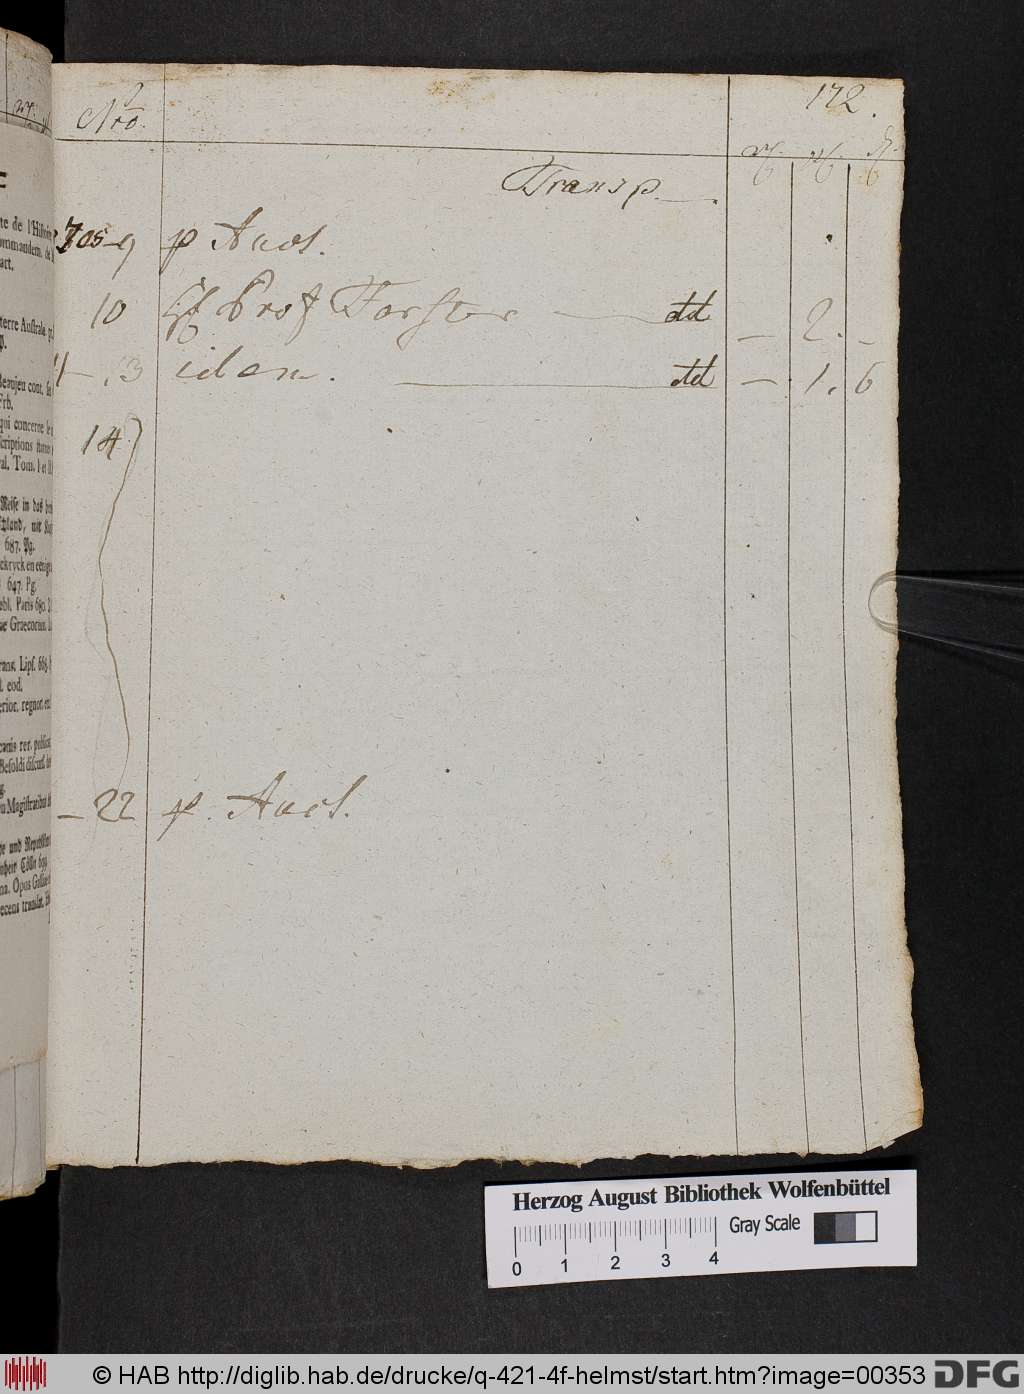 172.
Nro.
Transp.
705-9 p Auct.
10 Prof Forster dd — 2. —
11 — 13 idem. dd — 1. 6
14
— 22 p. Auct.
ne de l'Histoire
commandem. de
art.
terre Australe
p.
Beaujeu cont.
qui concerne le
scriptions
Tom. I et II
Reise in das
687. Pg.
647. Pg.
Paris 680
Graecorum.
Lips. 668.
eod.
rior. regnor.
rer. public
Besoldi discurs.
Magistratibus
und
Cölln
Opus
recens translat.
Herzog August Bibliothek Wolfenbüttel
Gray Scale
0 1 2 3 4
© HAB http://diglib.hab.de/drucke/q-421-4f-helmst/start.htm?image=00353 DFG